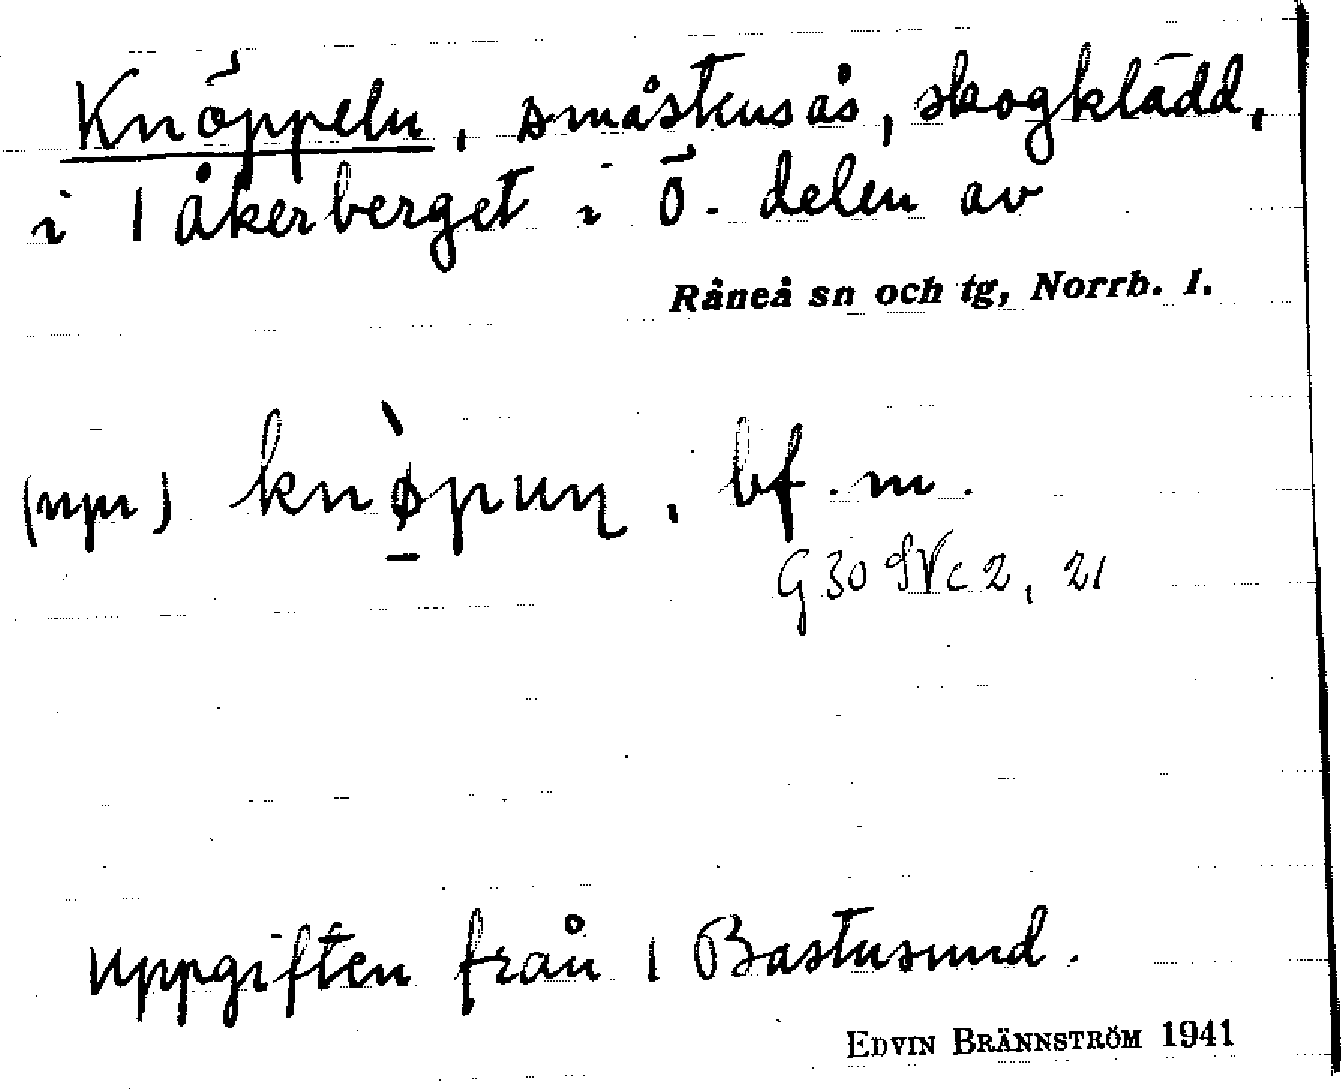 Knöppeln, småskusås, skogklädd,
i | åkerberget i ö. delen av
Råneå sn och tg, Norrb. l.
(npn) knø̀puɳ, bf. m.
G 30 SV c 2, 21
Uppgiften från | Bastusund.
EDVIN BRÄNNSTRÖM 1941